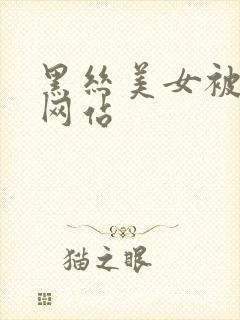 黑丝美女被
网站
猫之眼